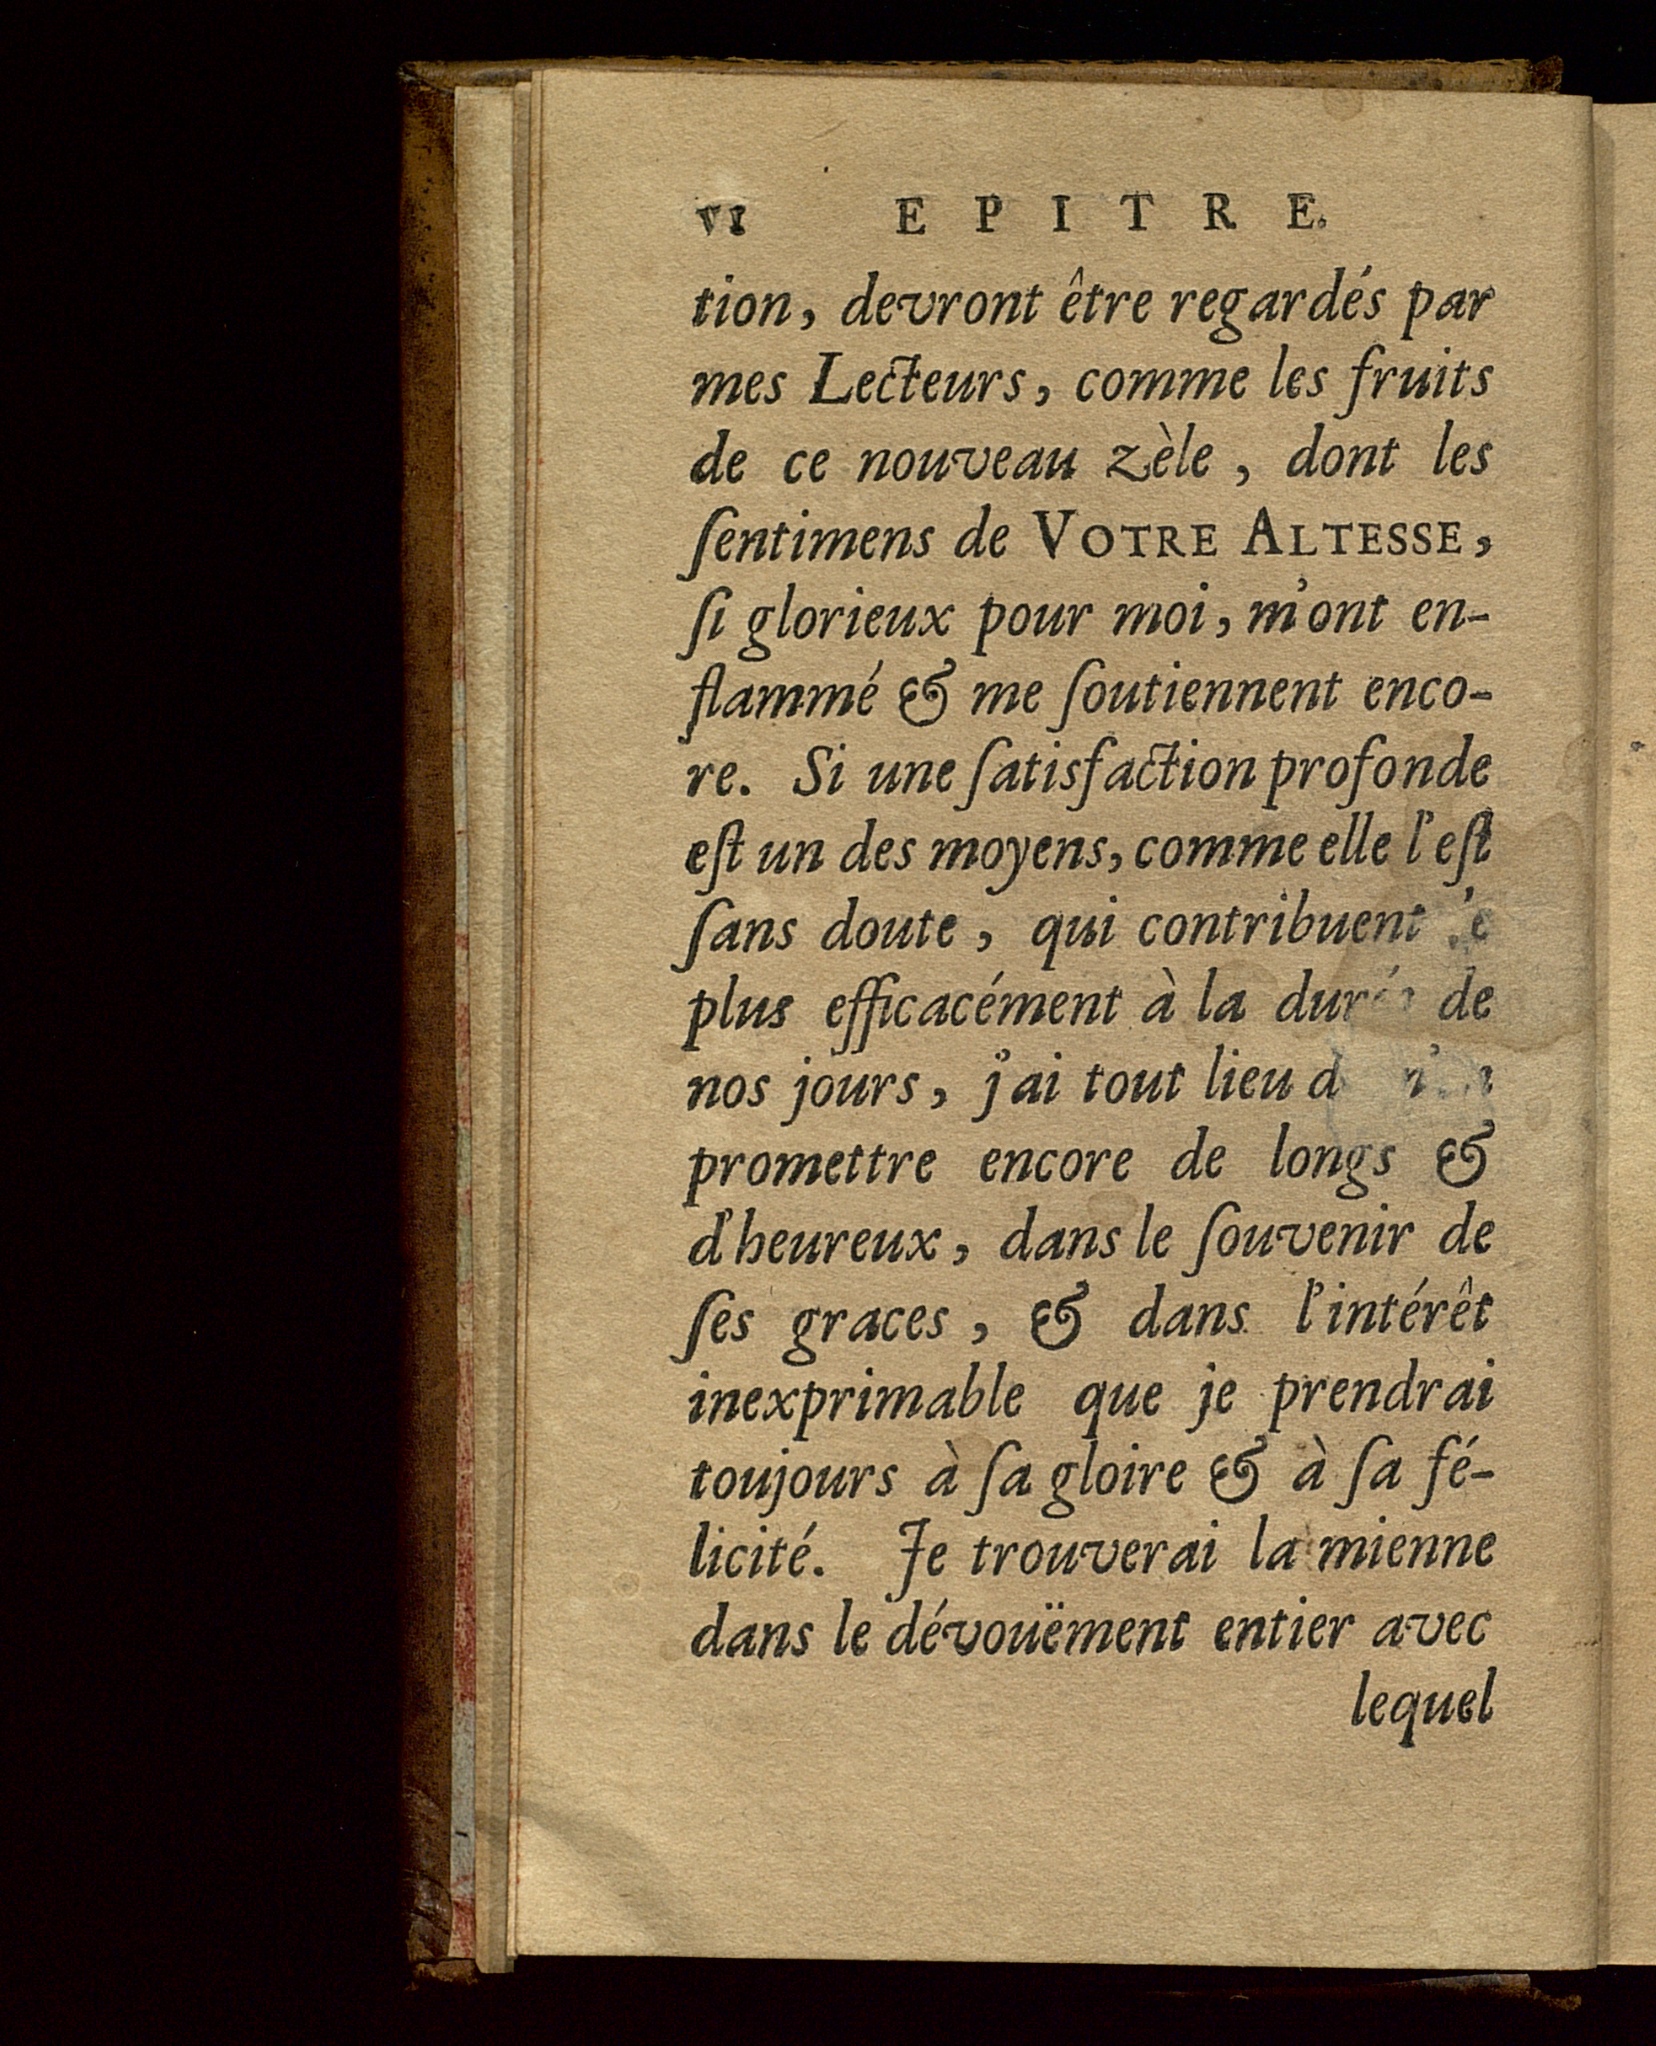 VI EPITRE.
tion, devront être regardés par
mes Lecteurs, comme les fruits
de ce nouveau zèle, dont les
ſentimens de VOTRE ALTESSE,
ſi glorieux pour moi, m'ont en-
flammé & me ſoutiennent enco-
re. Si une ſatisfaction profonde
eſt un des moyens, comme elle l'eſt
ſans doute, qui contribuent
plus efficacément à la durée de
nos jours, j'ai tout lieu
promettre encore de longs &
d'heureux, dans le ſouvenir de
ſes graces, & dans l'intérêt
inexprimable que je prendrai
toujours à ſa gloire & à ſa fé-
licité. Je trouverai la mienne
dans le dévouëment entier avec
lequel